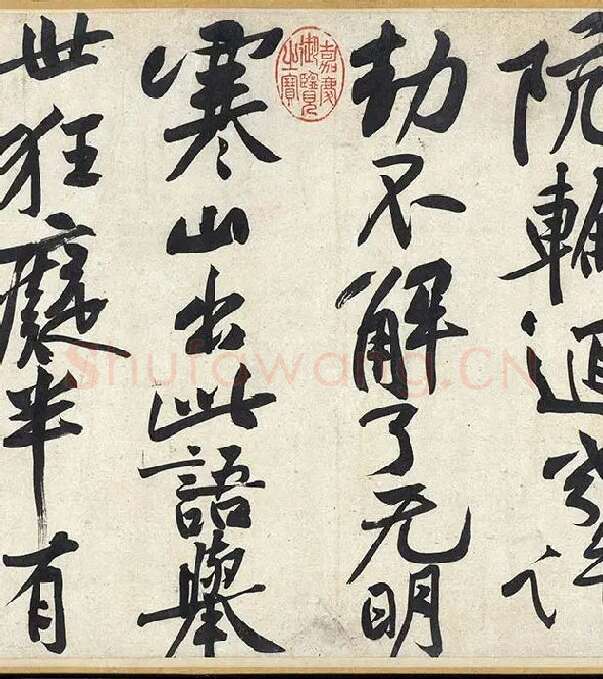 阬輪迴幾許
劫不解了无明
嘉慶御覽之寶
寒山出此語舉
世狂癡半有
Shufawang.CN